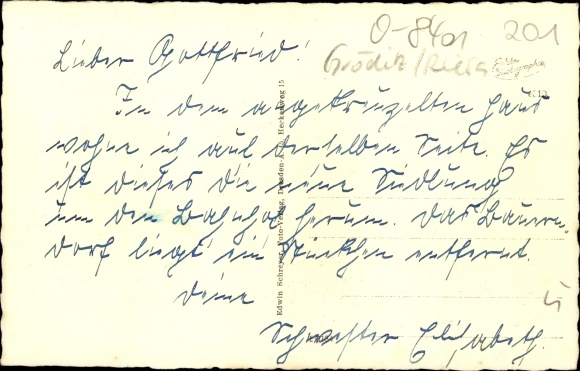 O-8401 201
Gröditz/Riesa
Echte Photographie
Lieber Gottfried!
In dem angekreuzelten Haus
wohne ich auf derselben Seite. Es
ist dieses die neue Siedlung
um den Bahnhof herum. Das Bauern-
dorf liegt ein Stückchen entfernt.
Deine
Schwester Elisabeth.
Edwin Schreyer, Foto-Verlag, Dresden-A. Heckenweg 15